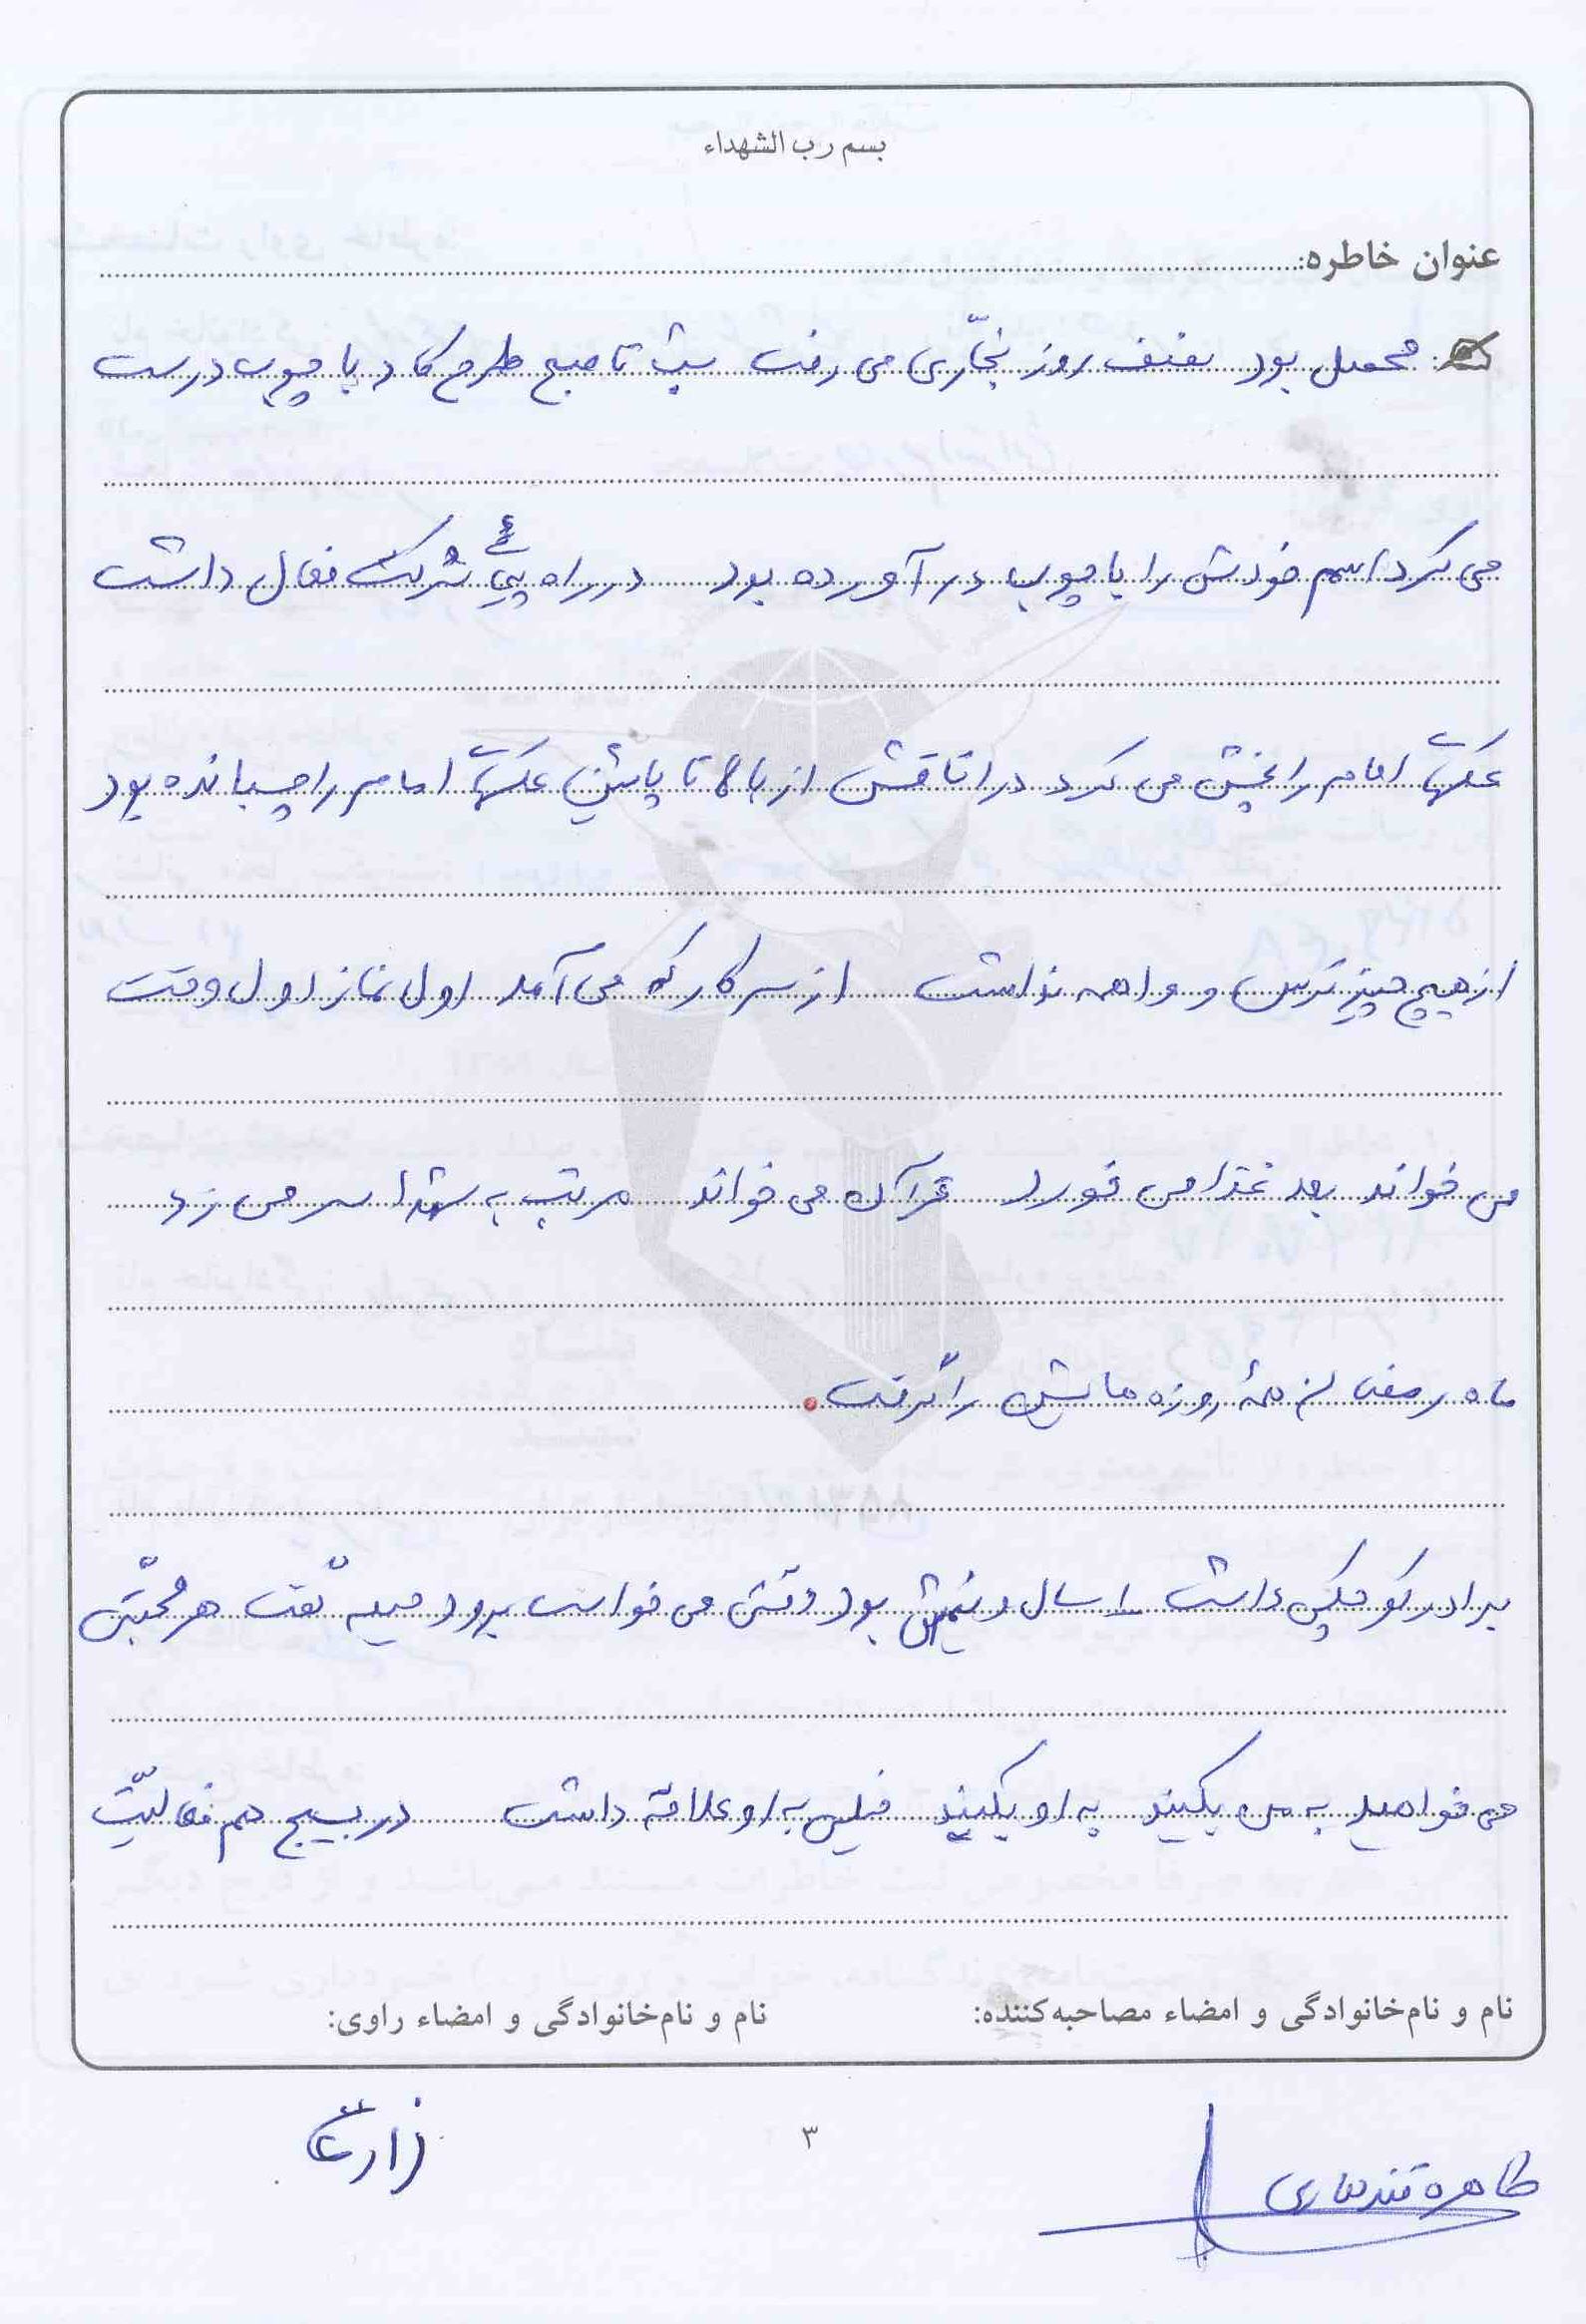 بسم رب الشهداء
عنوان خاطره:
محصل بود نصف روز نجّاری می رفت شب تا صبح طرح کاد با چوب درست
می کرد اسم خودش را با چوب در آورده بود در راه پیمائی شرکت فعال داشت
عکسهای امام را پخش می کرد در اتاقش از بالا تا پائین عکسهای امام را چسبانده بود
از هیچ چیز ترس و واهمه نداشت از سر کار که می آمد اول نماز اول وقت
می خواند بعد غذا می خورد قرآن می خواند مرتب به شهدا سر می زد
ماه رمضان همهٔ روزه هایش را گرفت.
برادر کوچکی داشت ۱ سال و نیمش بود وقتی می خواست برود جبهه گفت هر محبّتی
می خواهید به من بکنید به او بکنید خیلی به او علاقه داشت در بسیج هم فعالیّت
نام و نام‌خانوادگی و امضاء مصاحبه‌کننده: نام و نام‌خانوادگی و امضاء راوی:
۳
طاهره قندهاری